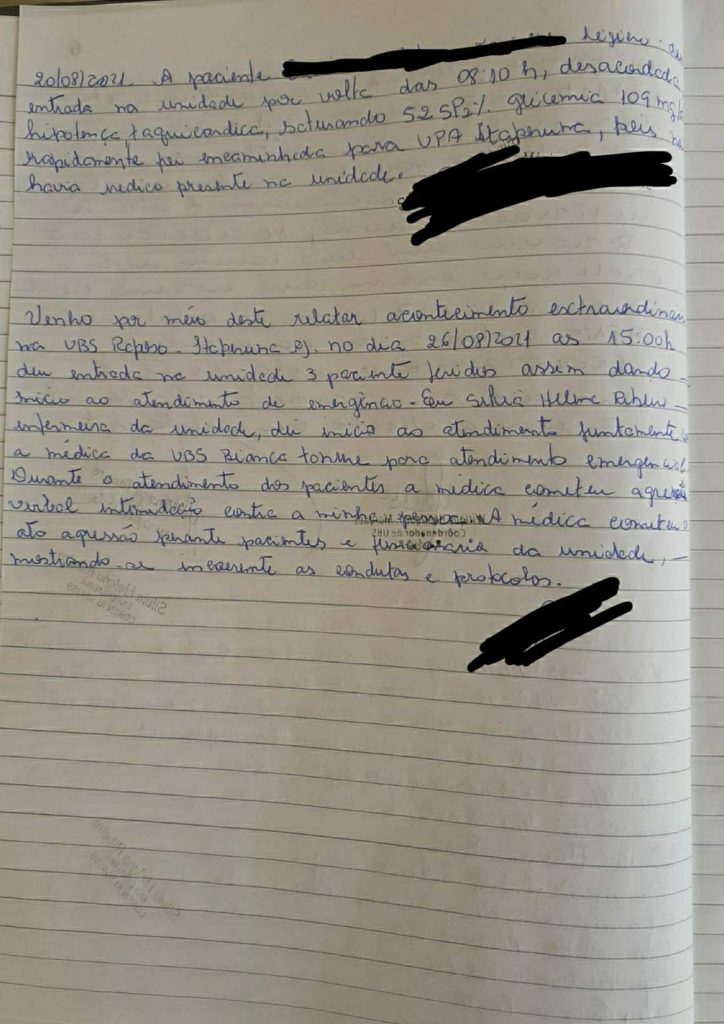 20/08/2021. A paciente Ligino de
entrada na unidade por volta das 08:10 h, desacordada
hipotença, taquicardica, saturando 52 SP2%. glicemia 109 mg/
rapidamente foi encaminhada para UPA Itaperuna, pois
havia medico presente na unidade.
Venho por meio deste relatar acontecimento extraordinar
na UBS Raposo. Itaperuna RJ. no dia 26/08/2021 as 15:00h
deu entrada na unidade 3 paciente feridos assim dando
inicio ao atendimento de emergência - Eu Silvia Helena
enfermeira da unidade, dei inicio ao atendimento juntamente
a médica da UBS Bianca para atendimento emergencial
Durante o atendimento dos pacientes a médica cometeu agressão
verbal intimidação contra a minha pessoa. A médica cometeu o
ato agressão perante pacientes e funcionaria da unidade, -
mostrando-se incoerente as condutas e protocolos.
Coordenador de UBS
Silvia Helena